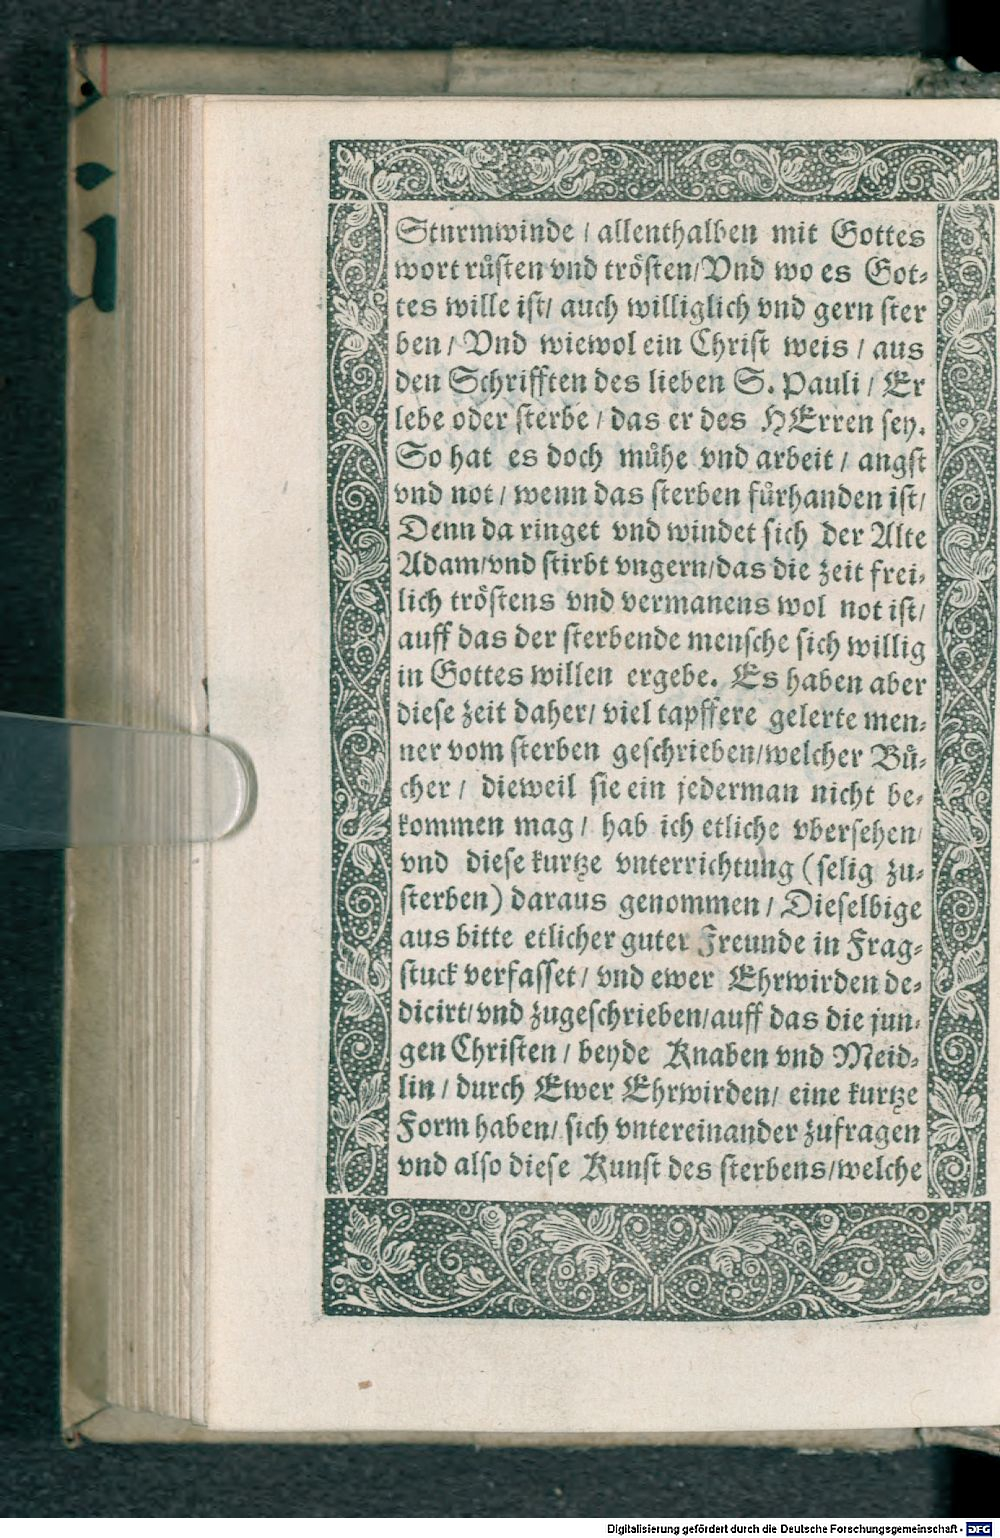 Sturmwinde / allenthalben mit Gottes
wort růsten vnd trösten/Vnd wo es Got⸗
tes wille ist/ auch williglich vnd gern ster
ben / Vnd wiewol ein Christ weis / aus
den Schrifften des lieben S. Pauli / Er
lebe oder sterbe / das er des HErren sey.
So hat es doch můhe vnd arbeit / angst
vnd not / wenn das sterben fůrhanden ist/
Denn da ringet vnd windet sich der Alte
Adam/vnd stirbt vngern/das die zeit frei⸗
lich tröstens vnd vermanens wol not ist/
auff das der sterbende mensche sich willig
in Gottes willen ergebe. Es haben aber
diese zeit daher/ viel tapffere gelerte men⸗
ner vom sterben geschrieben/welcher Bů⸗
cher / dieweil sie ein jederman nicht be⸗
kommen mag / hab ich etliche vbersehen/
vnd diese kurtze vnterrichtung (selig zu⸗
sterben) daraus genommen / Dieselbige
aus bitte etlicher guter Freunde in Frag⸗
stuck verfasset / vnd ewer Ehrwirden de⸗
dicirt/vnd zugeschrieben/auff das die jun⸗
gen Christen / beyde Knaben vnd Meid⸗
lin / durch Ewer Ehrwirden/ eine kurtze
Form haben/ sich vntereinander zufragen
vnd also diese Kunst des sterbens/welche
Digitalisierung gefördert durch die Deutsche Forschungsgemeinschaft - DFG